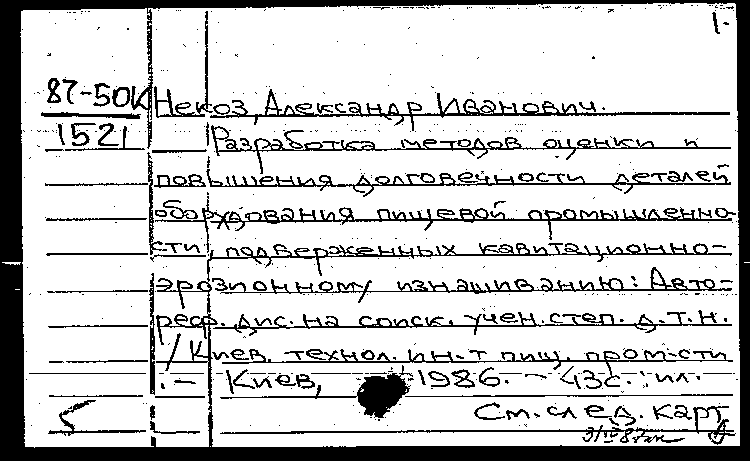 1-
87-50К Некоз, Александр Иванович.
1521 Разработка методов оценки и
повышения долговечности деталей
оборудования пищевой промышленно-
сти, подверженных кавитационно-
эрозионному изнашиванию: Авто-
реф. дис. на соиск. учен. степ. д.т.н.
/ Киев. технол. ин-т пищ. пром-сти
. – Киев, 1986. – 43с.: ил.
5 См. след. карт.